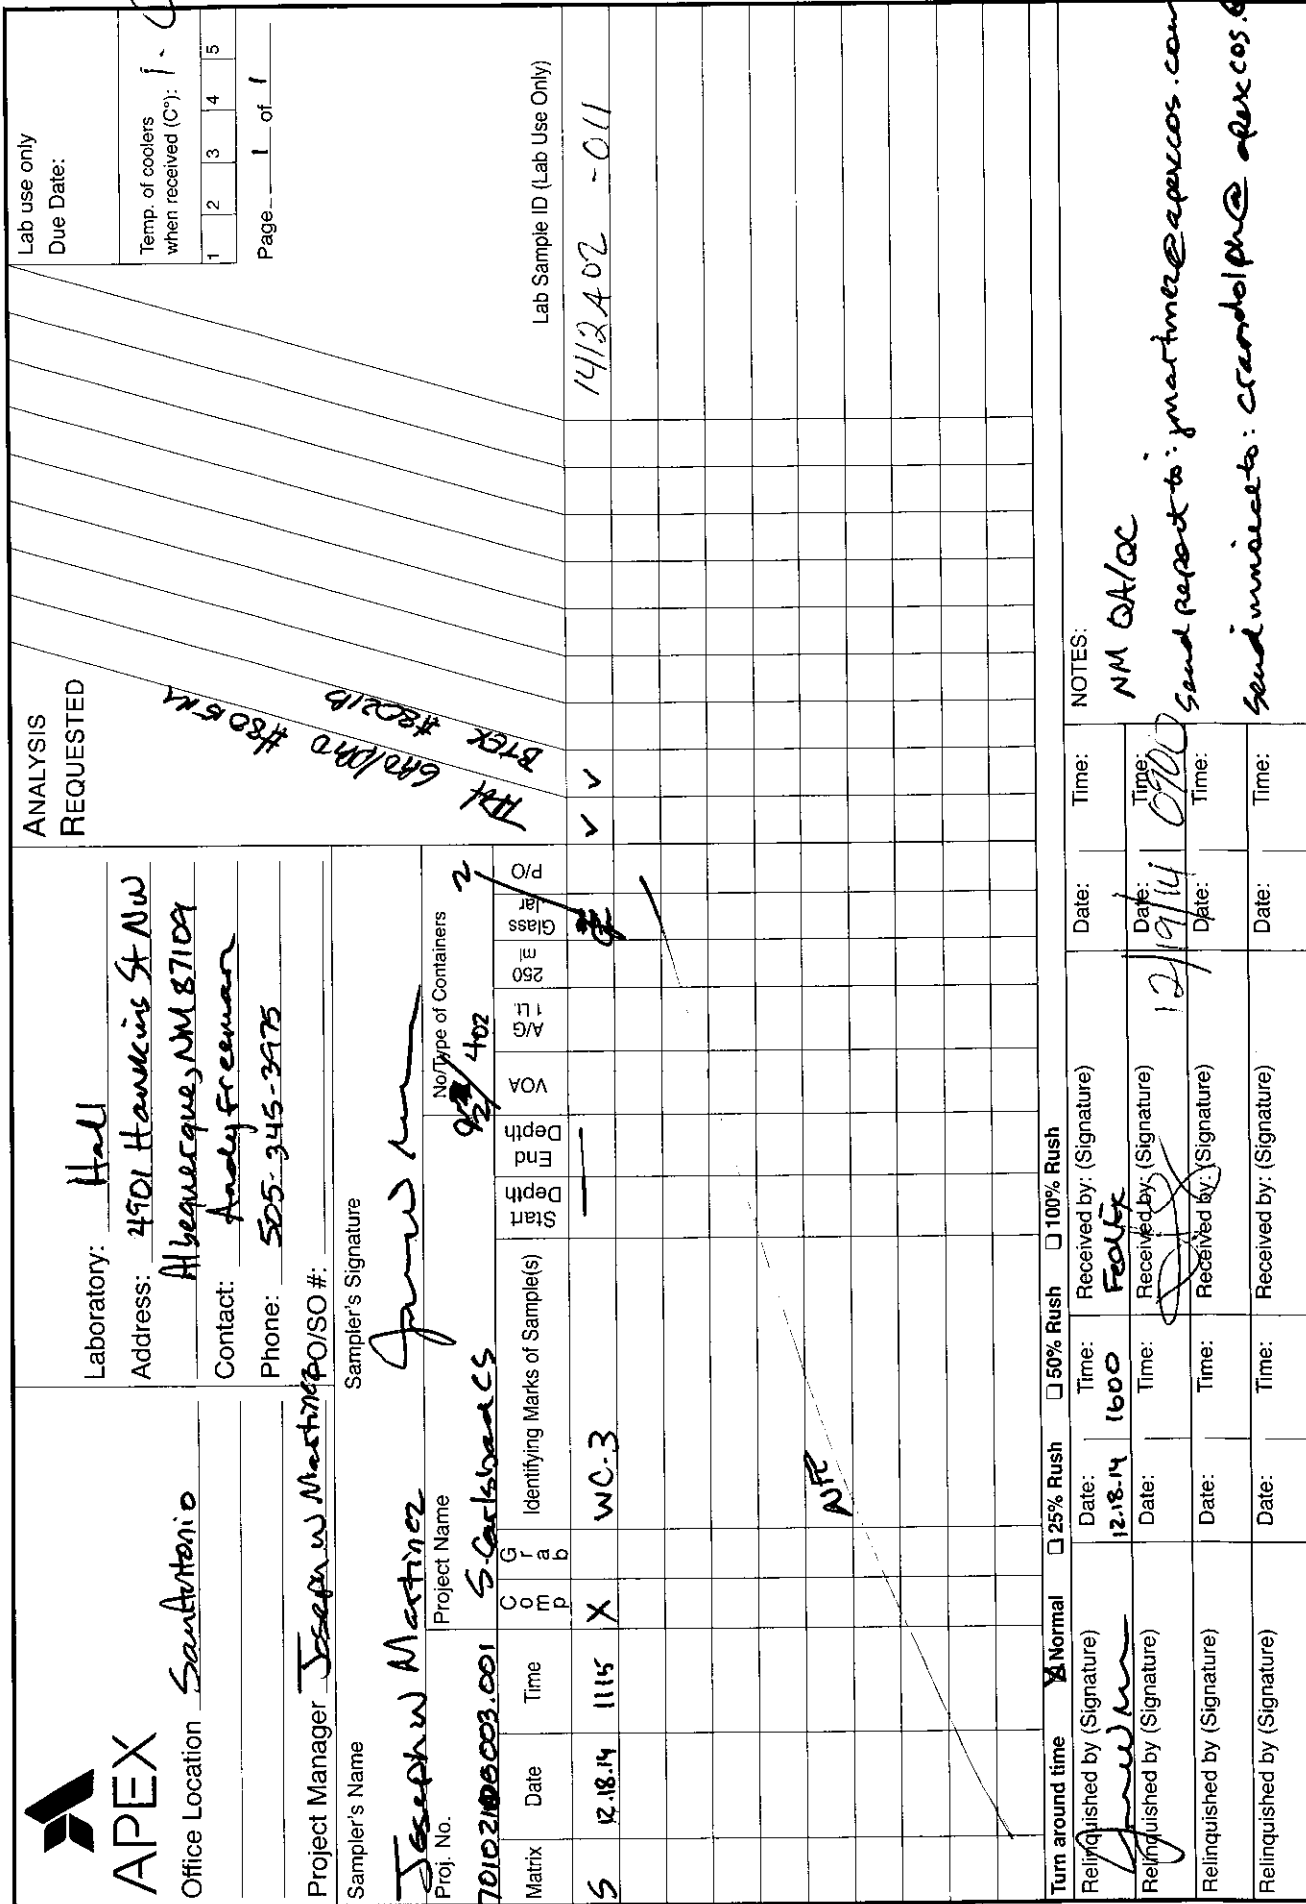 APEX
Office Location San Antonio
Project Manager Joseph W Martinez
Laboratory: Hall
Address: 4901 Hawkins St NW
Albequerque, NM 87109
Contact: Andy Freeman
Phone: 505-345-3975
PO/SO #:
Sampler's Name
Joseph W Martinez
Sampler's Signature
ANALYSIS
REQUESTED
TPH GRO/DRO #8015M
BTEX #8021B
Lab use only
Due Date:
Temp. of coolers
when received (C°): 1.
1 2 3 4 5
Page 1 of 1
Proj. No.
Project Name
S-Carlsbad CS
No/Type of Containers
2/ 4oz
2
Matrix Date Time Comp Grab Identifying Marks of Sample(s) Start Depth End Depth VOA A/G 1 Lt. 250 ml Glass Jar P/O
Lab Sample ID (Lab Use Only)
S 12.18.14 1115 X WC-3 ✓ ✓ 1412A02 -011
NFE
Turn around time X Normal 25% Rush 50% Rush 100% Rush
Relinquished by (Signature) Date: 12.18.14 Time: 1600 Received by: (Signature) FedEx Date: Time:
Relinquished by (Signature) Date: Time: Received by: (Signature) Date: 12/19/14 Time: 0900
Relinquished by (Signature) Date: Time: Received by: (Signature) Date: Time:
Relinquished by (Signature) Date: Time: Received by: (Signature) Date: Time:
NOTES:
NM QA/QC
Send report to: jmartinez@apexcos.com
Send invoice to: crandolph@apexcos.